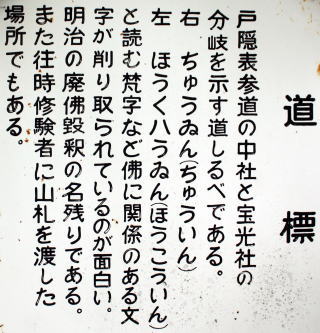 道標
戸隠表参道の中社と宝光社の
分岐を示す道しるべである。
右　ちゅうゐん(ちゅういん)
左　ほうくハうゐん(ほうこういん)
と読む梵字など佛に関係のある文
字が削り取られているのが面白い。
明治の廃佛毀釈の名残りである。
また往時修験者に山札を渡した
場所でもある。